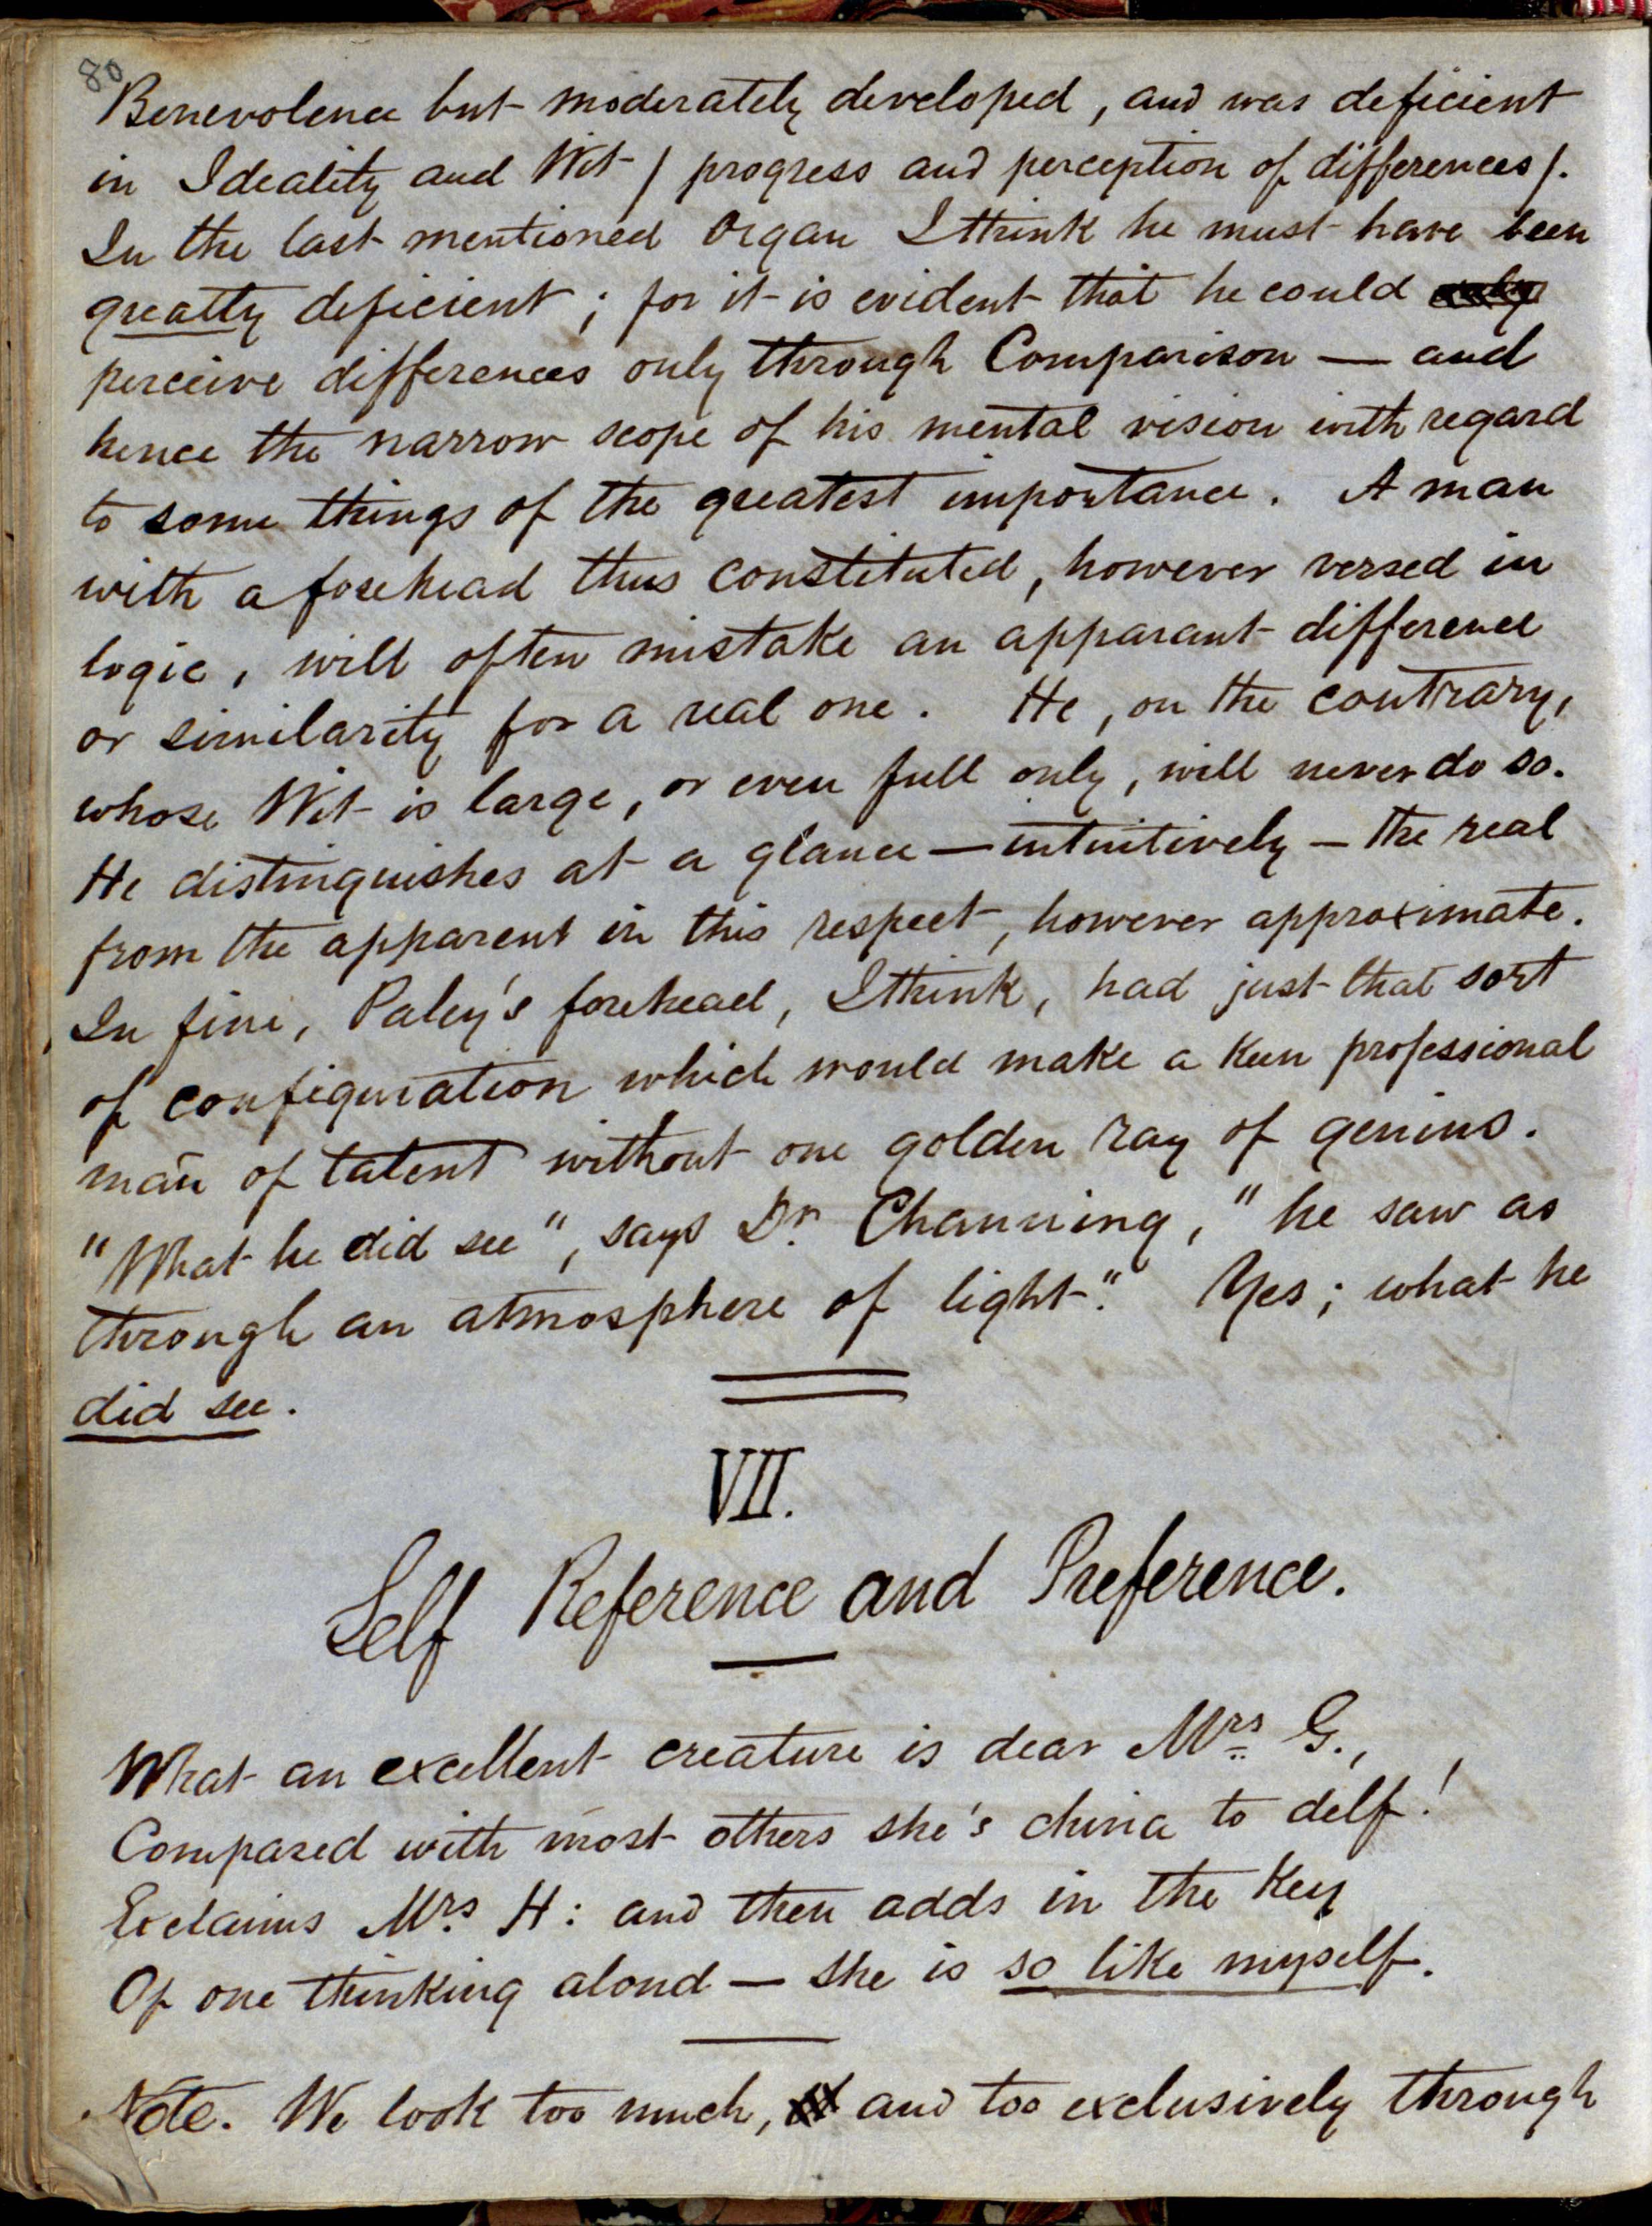 80
Benevolence but moderately developed, and was deficient
in Ideality and Wit / progress and perception of differences /.
In the last mentioned Organ I think he must have been
greatly deficient ; for it is evident that he could only
perceive differences only through Comparison — and
hence the narrow scope of his mental vision with regard
to some things of the greatest importance. A man
with a forehead thus constituted, however versed in
logic, will often mistake an apparant difference
or similarity for a real one. He, on the contrary,
whose Wit is large, or even full only, will never do so.
He distinguishes at a glance — intuitively — the real
from the apparent in this respect, however approximate.
In fine, Paley's forehead, I think, had just that sort
of configuration which would make a keen professional
man of talent without one golden ray of genius.
"What he did see", says Dr. Channing, "he saw as
through an atmosphere of light." Yes; what he
did see.
VII.
Self Reference and Preference.
What an excellent creature is dear Mrs G.,
Compared with most others she's china to delf!
Exclaims Mrs. H: and then adds in the key
Of one thinking aloud — she is so like myself.
Note. We look too much, and too exclusively through